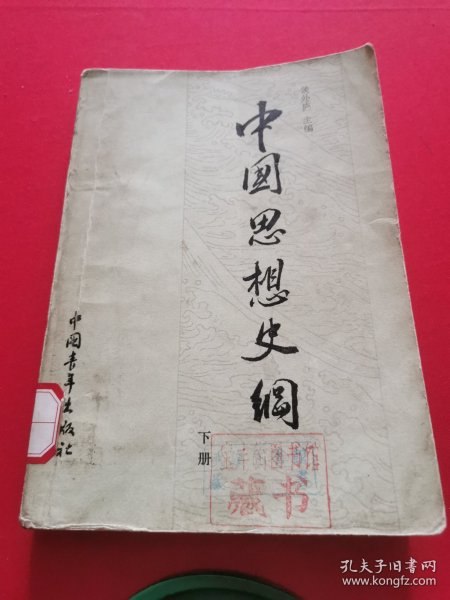 侯外庐 主编
中国思想史纲
下册
中国青年出版社
图书馆
藏书
孔夫子旧书网
www.kongfz.com